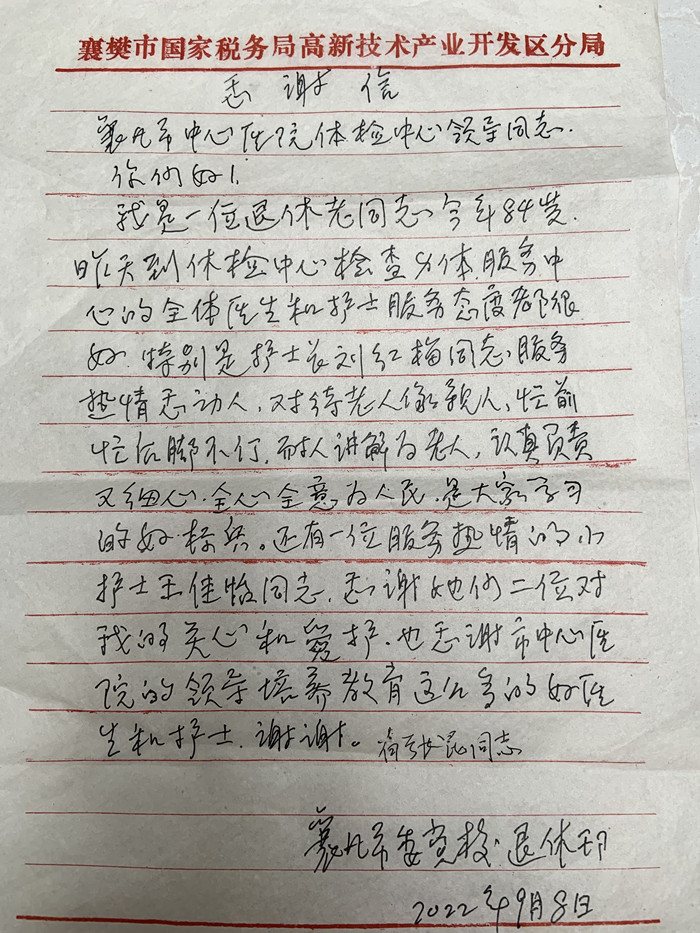 襄樊市国家税务局高新技术产业开发区分局
感谢信
襄阳市中心医院体检中心领导同志.
你们好!
我是一位退休老同志今年84岁.
昨天到体检中心检查身体服务中
心的全体医生和护士服务态度都很
好.特别是护士长刘红梅同志服务
热情感动人,对待老人像亲人,忙前
忙后脚不停,耐人讲解为老人,认真负责
又细心.全心全意为人民.是大家学习
的好标兵。还有一位服务热情的小
护士王佳怡同志.感谢她们二位对
我的关心和爱护.也感谢市中心医
院的领导培养教育这么多的好医
生和护士.谢谢。同志
襄阳市委党校.退休
2022年9月8日